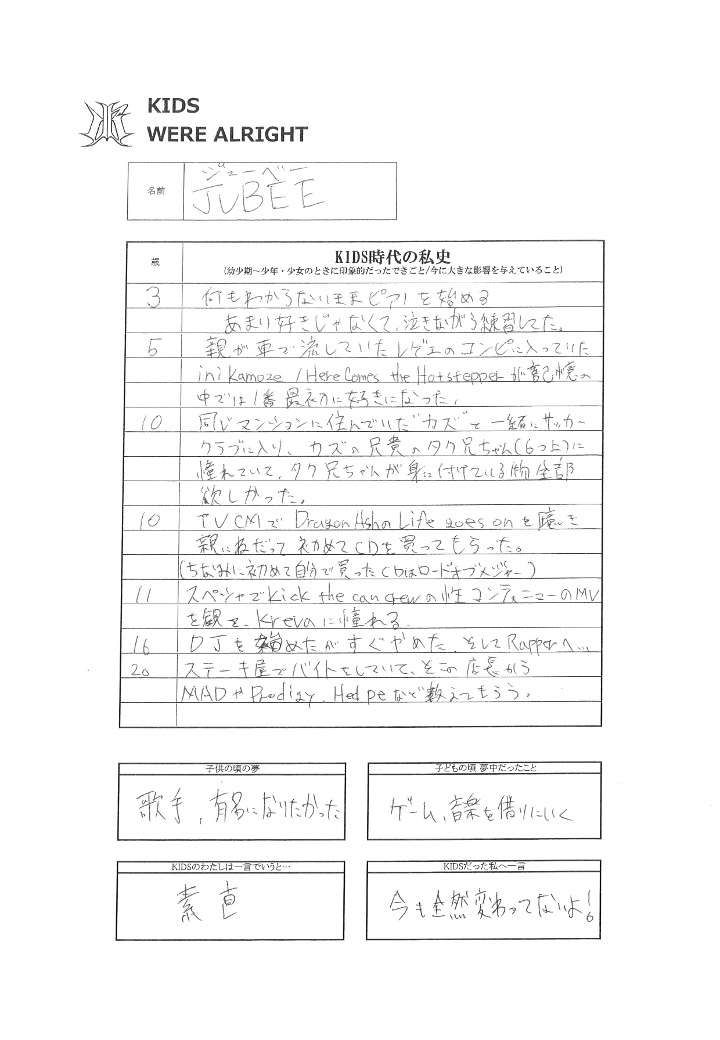 KIDS
WERE ALRIGHT
名前
ジューベー
JUBEE
歳
KIDS時代の私史
(幼少期～少年・少女のときに印象的だったできごと/今に大きな影響を与えていること)
3 何もわからないままピアノを始める
あまり好きじゃなくて、泣きながら練習してた。
5 親が車で流していたレゲエのコンピに入っていた
inikamoze / Here Comes the Hotstepperが記憶の
中では1番最初に好きになった。
10 同じマンションに住んでいた"カズ"と一緒にサッカー
クラブに入り、カズの兄貴のタク兄ちゃん(6つ上)に
憧れていて、タク兄ちゃんが身に付けている物全部
欲しかった。
10 TVCMで Dragon Ashの Life goes onを聴き
親にねだって初めてCDを買ってもらった。
(ちなみに初めて自分で買ったCDはロードオブメジャー)
11 スペシャでKick the can crewの性コンティニューのMV
を観て、Krevaに憧れる。
16 DJを始めたがすぐやめた、そしてRapperへ...
20 ステーキ屋でバイトをしていて、そこの店長から
MADやProdigy、Hed peなど教えてもらう。
子供の頃の夢
歌手、有名になりたかった
子どもの頃 夢中だったこと
ゲーム、音楽を借りにいく
KIDSのわたしは一言でいうと…
素直
KIDSだった私へ一言
今も全然変わってないよ!